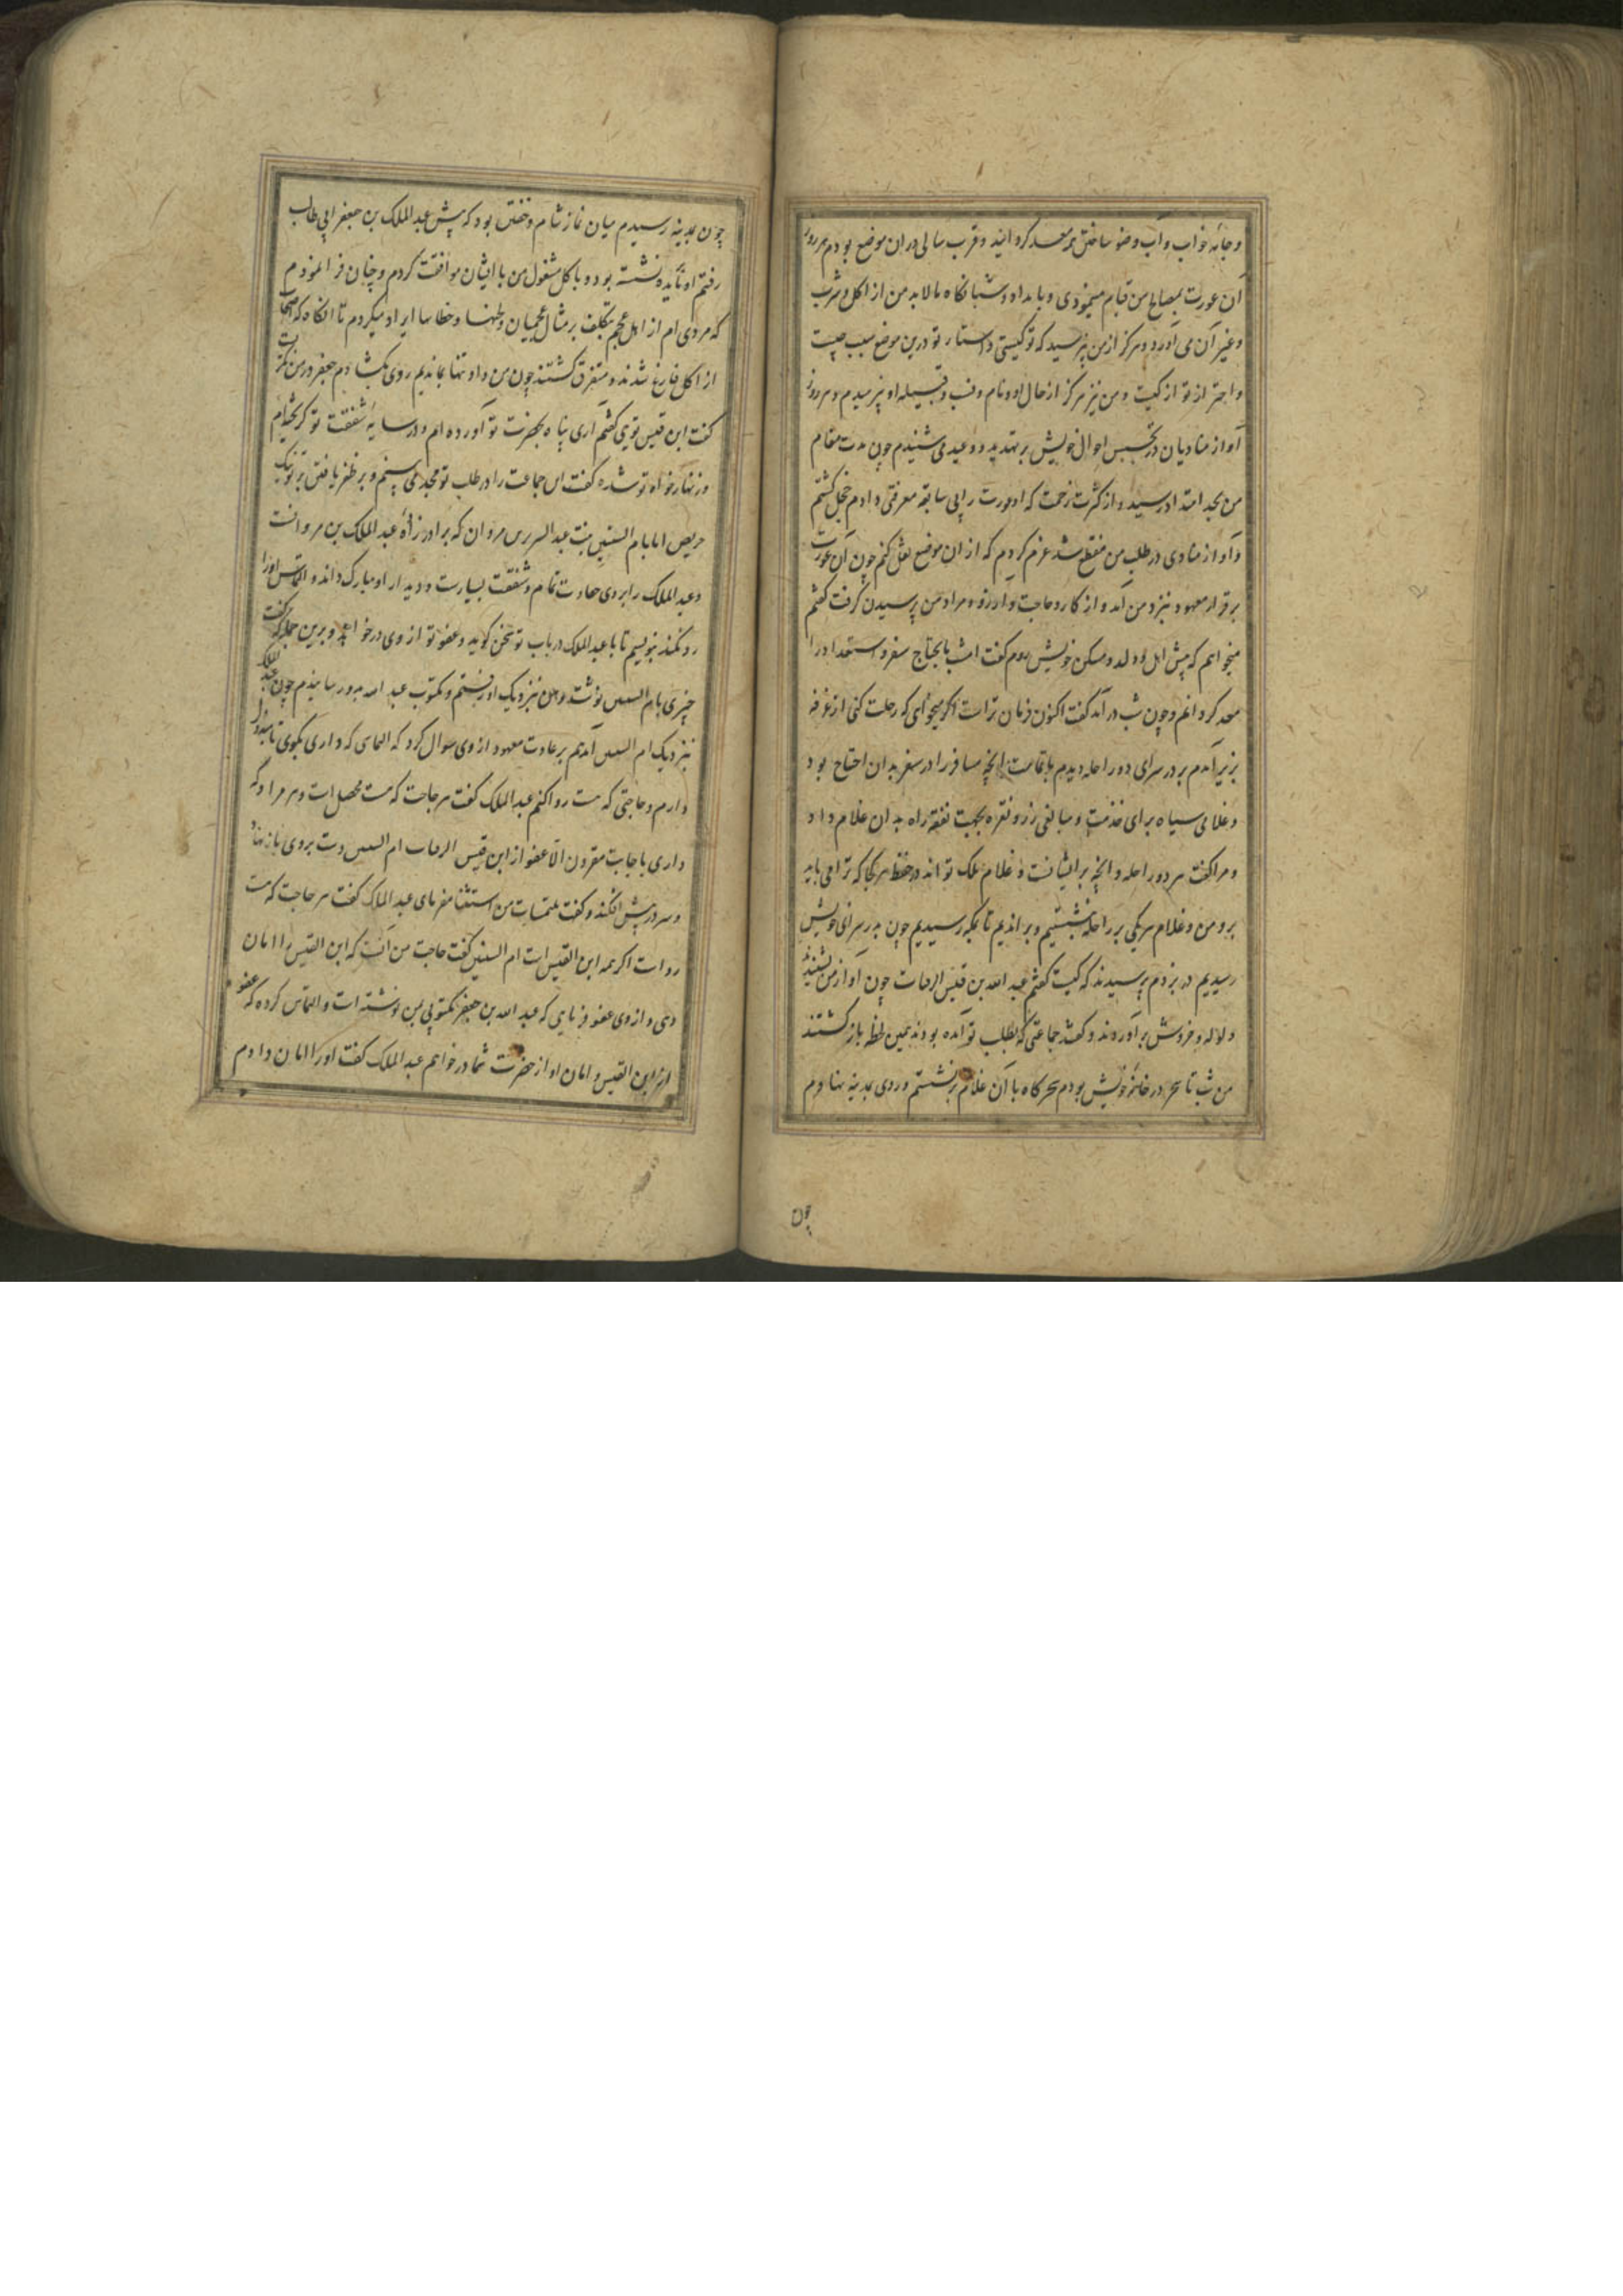 و جامهٔ خواب و آب وضو ساختن همه معد کردانید و قرب سالی در ان موضع بودم هر روز
آن عورت بمصالح من قیام مینمودی و بامداد و شبانکاه مالابد من از اکل و شرب
و غیر آن می آورد و هرکز از من نپرسید که تو کیستی و استتار تو درین موضع سبب چیست
و احتراز تو از کیست و من نیز هرکز از حال او و نام و نسب و قبیله او نپرسیدم و هر روز
آواز منادیان در تجسس احوال خویش بر تهدید و وعید می شنیدم چون مدت مقام
من بحد امتداد رسید و از کثرت زحمت که ان عورت را بی سابقه معرفتی دادم خجل کشتم
و آواز منادی در طلب من منقطع شد عزم کردم که از ان موضع نقل کنم چون آن عورت
برقرار معهود بنزد من آمد و از کار و حاجت و آرزو و مراد من پرسیدن کرفت کفتم
میخواهم که پیش اهل و ولد و مسکن خویش روم کفت امشب مایحتاج سفر و استعداد ترا
معد کردانم و چون شب در آمد کفت اکنون فرمان تراست اکر میخواهی که رحلت کنی از غرفه
بزیر آمدم بر در سرای دو راحله دیدم با تمامت انچه مسافر را در سفر بدان احتیاج بود
و غلامی سیاه برای خدمت و مبالغی زر و نقره بجهت نفقه راه بدان غلام داد
و مرا کفت هر دو راحله و انچه بر ایشانست و غلام ملک تواند در حفظ هر کجا که ترا می باید
برو من و غلام هر یکی بر راحله نشستیم و براندیم تا بمکه رسیدیم چون بدر سرای خویش
رسیدیم در بزدم پرسیدند که کیست کفتم عبد الله بن قیس الرقیات چون آواز من بشنیدند
ولوله و خروش برآوردند و کفتند جماعتی که بطلب تو آمده بودند همین لحظه باز کشتند
من شب تا سحر در خانهٔ خویش بودم سحرکاه با آن غلام برنشستم و روی بمدینه نهادم
چون
چون بمدینه رسیدم میان نماز شام و خفتن بود که پیش عبد الملک بن جعفر ابی طالب
رفتم او مایده نشسته بود و باکل مشغول من با ایشان موافقت کردم و چنان فرا نمودم
که مردی ام از اهل عجم بتکلف بر مثال عجمیان و لحنها و خطاها ایراد میکردم تا انکاه که اصحاب
از اکل فارغ شدند و متفرق کشتند چون من و او تنها بماندیم روی بکشادم جعفر در من نکریست
کفت ابن قیس تویی کفتم آری پناه بحضرت تو آورده ام و در سایهٔ شفقت تو کریخته ام
و زنهار خواه تو شده کفت این جماعت را در طلب تو مجد می بینم و بر ظفر یافتن بر تو نیک
حریص اما بام البنین بنت عبد العزیز بن مروان که برادر زادهٔ عبد الملک بن مروانست
و عبد الملک را بر وی حفاوت تمام و شفقت بسیارست و دیدار او مبارک داند و التماس او را
رد نکند بنویسم تا با عبد الملک در باب تو سخن کوید و عفو تو از وی درخواهد و برین جمله که کفت
چیزی بام البنین نوشت و من نزدیک او رفتم و مکتوب عبد الله بدو رسانیدم چون عبد الملک
نزدیک ام البنین آمد هم بر عادت معهود از وی سوال کرد که التماسی که داری بکوی تا مبذول
دارم و حاجتی که هست روا کنم عبد الملک کفت هر حاجت که هست محصل است و هر مراد که
داری باجابت مقرون الا عفو از ابن قیس الرقیات ام البنین دست بروی باز نهاد
و سر در پیش افکند و کفت ملتمسات من استثنا مفرمای عبد الملک کفت هر حاجت که هست
رواست اکر همه ابن القیس است ام البنین کفت حاجت من آنست که ابن القیس را امان
دهی و از وی عفو فرمایی که عبد الله بن جعفر مکتوبی بمن نوشته است و التماس کرده که عفو
از ابن القیس و امان او از حضرت شما درخواهم عبد الملک کفت او را امان دادم